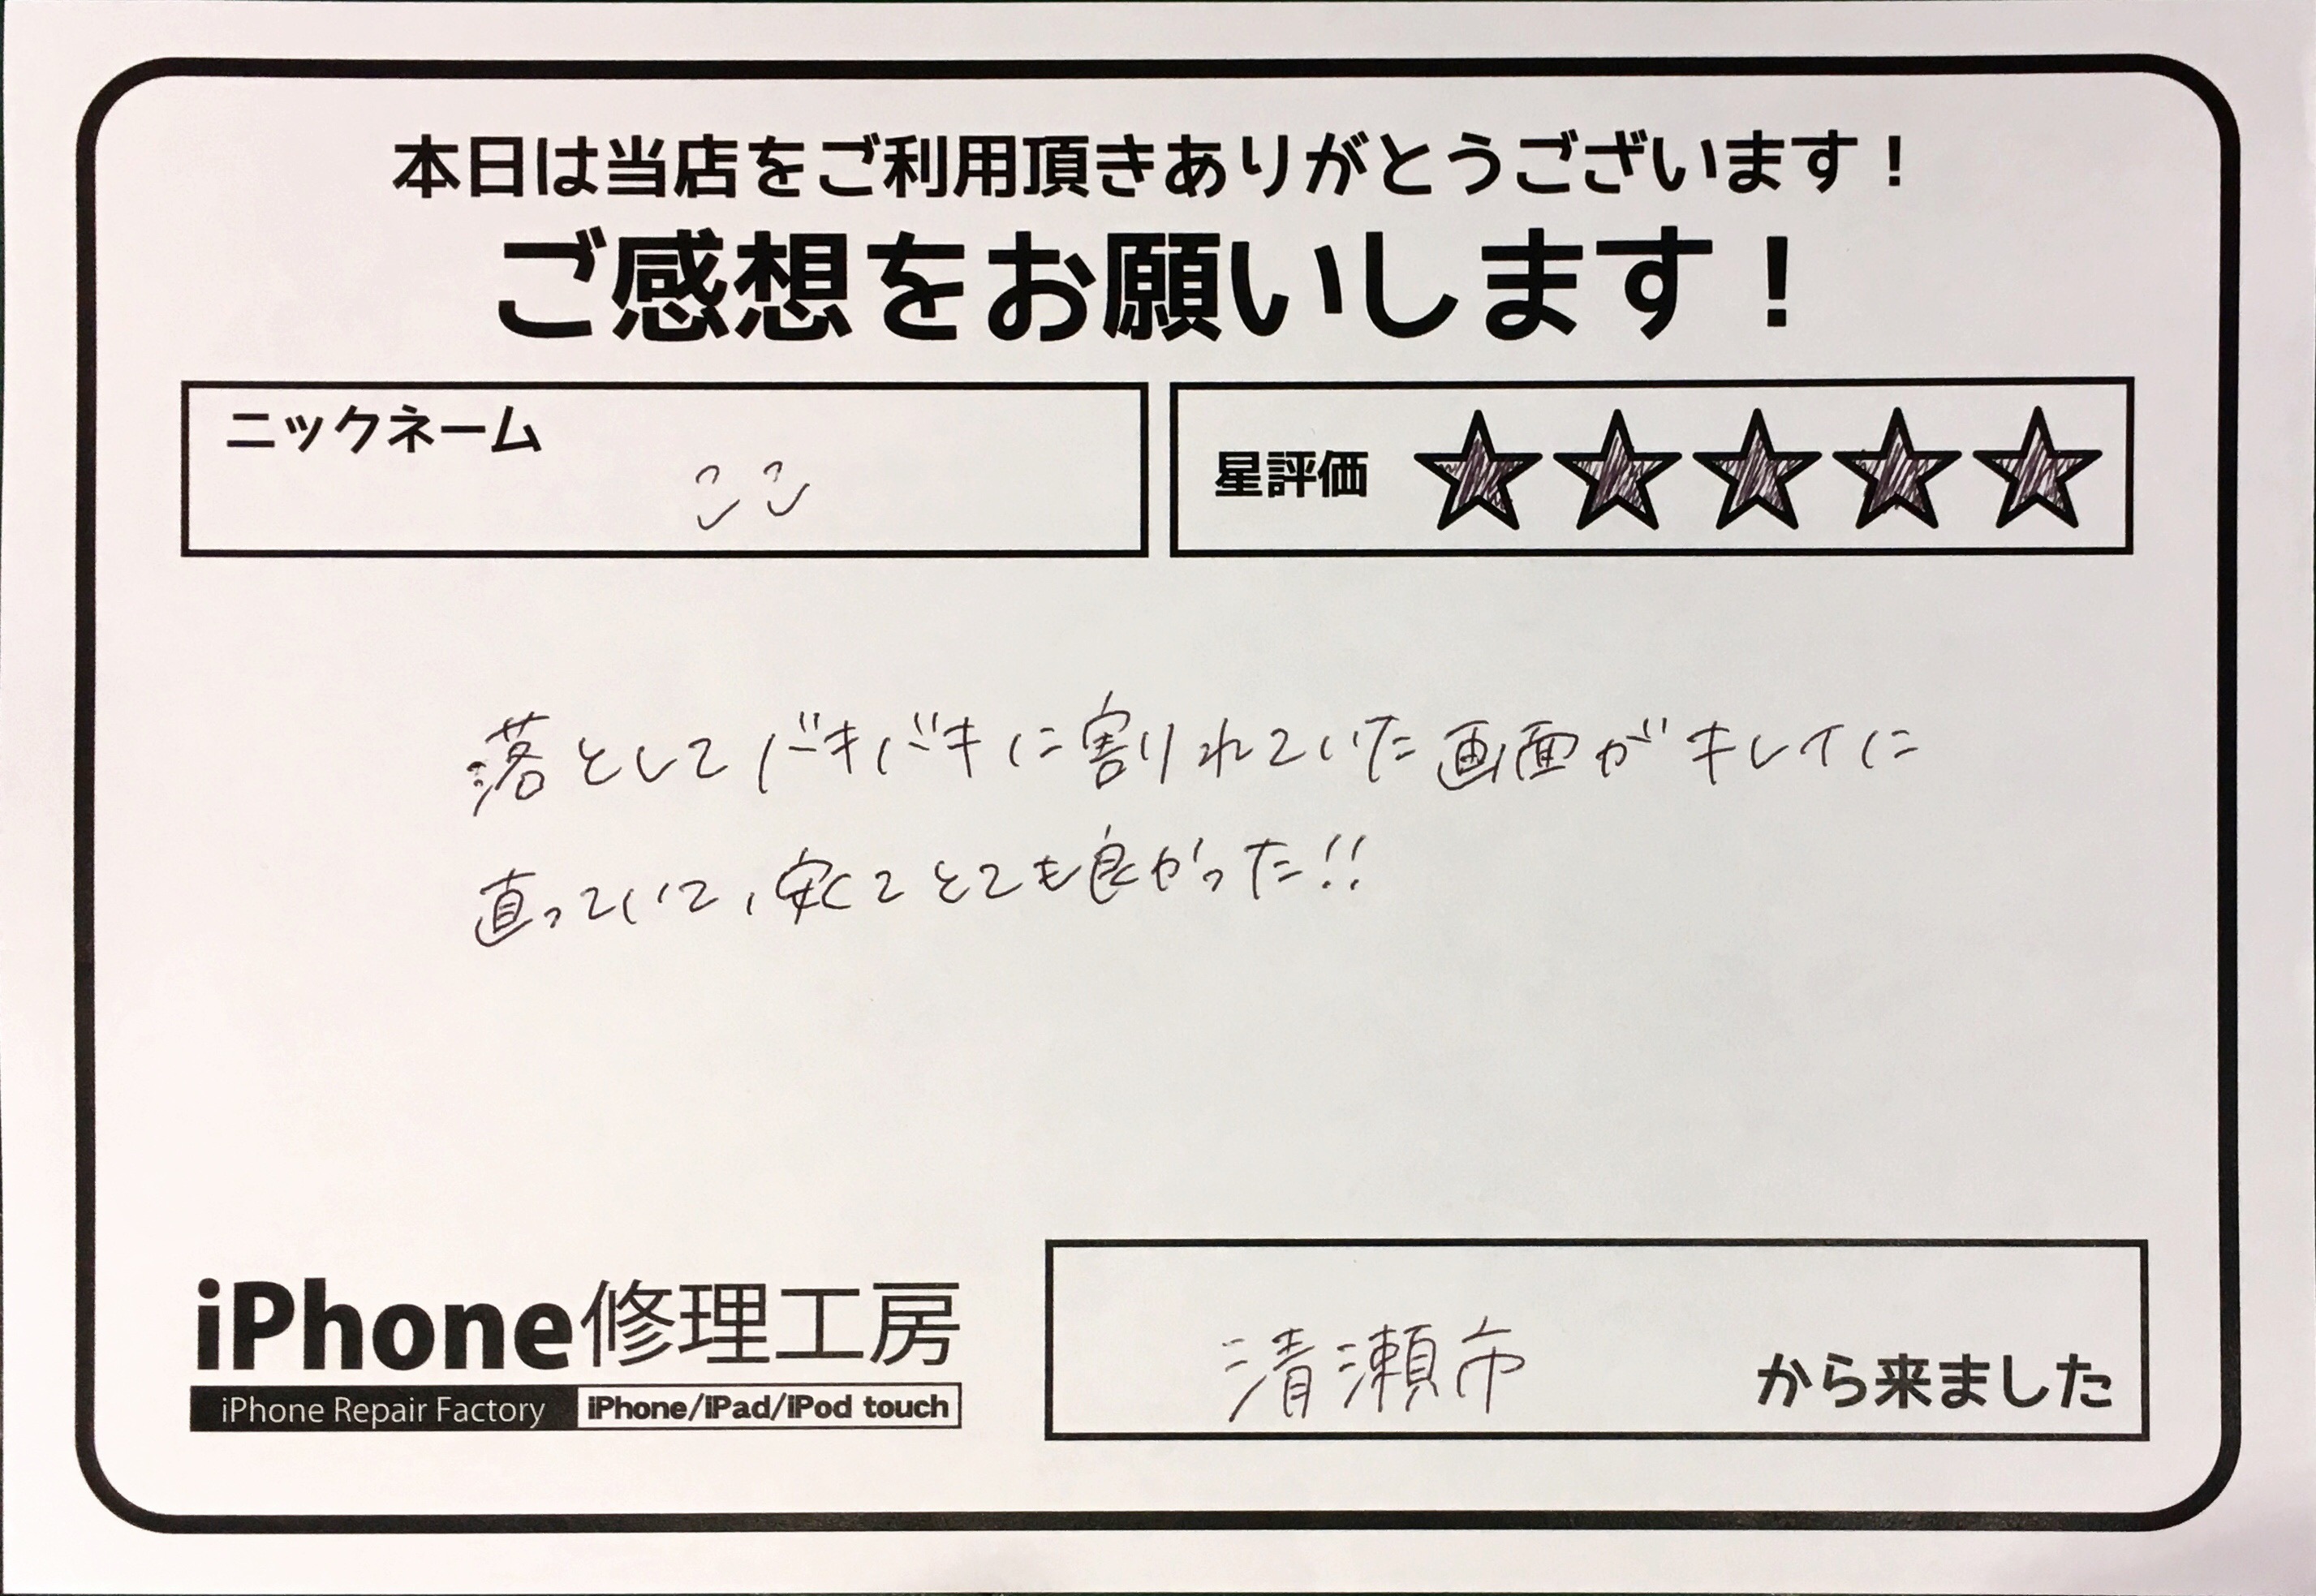 本日は当店をご利用頂きありがとうございます！
ご感想をお願いします！
ニックネーム
ここ
星評価 ★★★★★
落としてバキバキに割れていた画面がキレイに
直っていて、安くてとても良かった!!
iPhone修理工房
iPhone Repair Factory iPhone/iPad/iPod touch
清瀬市 から来ました